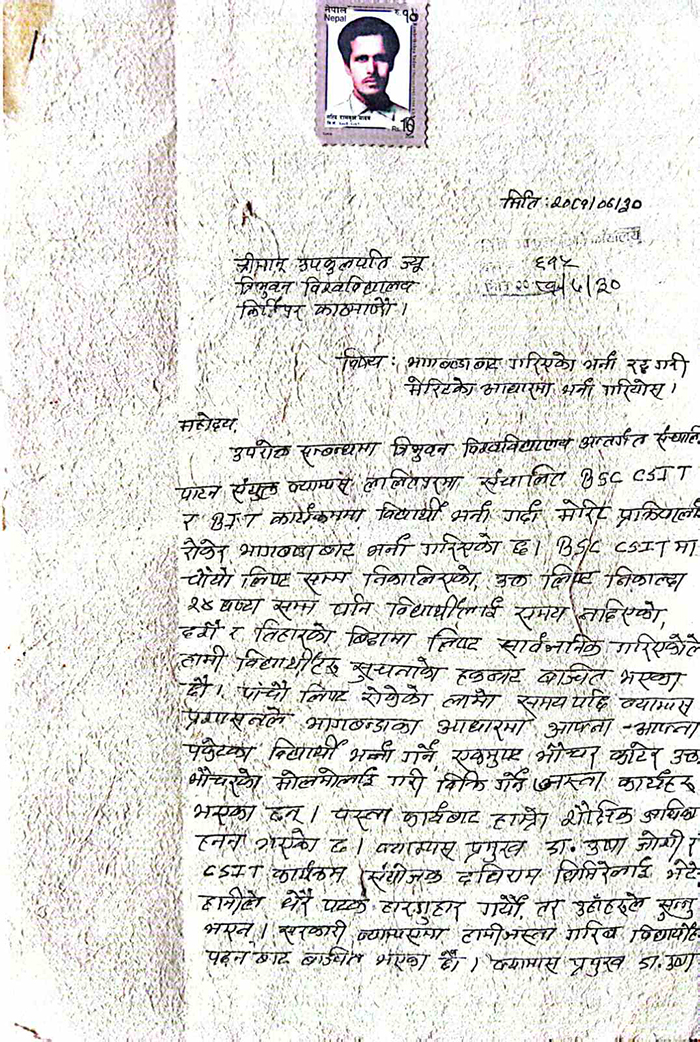 नेपाल रु. १०
Nepal
Rs. 10
मिति : २०८१/०७/३०
६१५
२०८१/७/३०
श्रीमान् उपकुलपति ज्यू
त्रिभुवन विश्वविद्यालय
किर्तिपुर काठमाण्डौ ।
विषय : भागबण्डाबाट गरिएको भर्ना रद्द गरी
मेरिटको आधारमा भर्ना गरियोस् ।
महोदय,
उपरोक्त सम्बन्धमा त्रिभुवन विश्वविद्यालय अन्तर्गत
पाटन संयुक्त क्याम्पस ललितपुरमा संचालित BSC CSIT
र BIT कार्यक्रममा विद्यार्थी भर्ना गर्दा मेरिट
रोकेर भागबण्डाबाट भर्ना गरिएको छ। BSC CSIT मा
चौथो लिष्ट सम्म निकालिएको, उक्त लिष्ट निकाल्दा
२४ घण्टा सम्म पनि विद्यार्थीलाई समय नदिएको,
दशैं र तिहारको बिदामा लिष्ट सार्वजनिक गरिएकोले
हामी विद्यार्थीहरु सूचनाको हकबाट बञ्चित भएका
छौं। पांचौं लिष्ट रोकेको लामो समयपछि क्याम्पस
प्रशासनले भागबण्डाका आधारमा आफ्ना -आफ्ना
पकेटका विद्यार्थी भर्ना गर्ने, एकमुष्ट भौचर काटेर उक्त
भौचरको मोलमोलाई गरी बिक्रि गर्ने जस्ता कार्यहरु
भएका छन्। यस्ता कार्यबाट हाम्रो शैक्षिक
हनन भएको छ। क्याम्पस प्रमुख डा. उषा जोशी र
CSIT कार्यक्रम संयोजक दधिराम घिमिरेलाई भेटेर
हामीले धेरै पटक हारगुहार गर्यौं, तर उहाँहरुले सुन्नु
भएन्। सरकारी क्याम्पसमा हामीजस्ता गरिब
पढ्न बाट बञ्चित भएका छौं। क्याम्पस प्रमुख डा. उषा